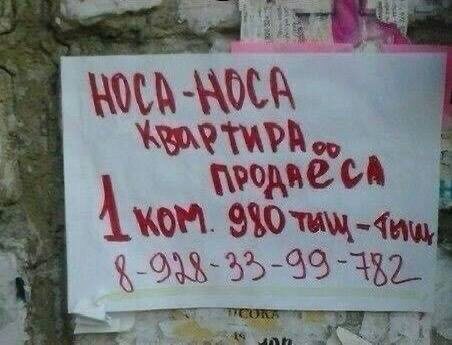 НОСА-НОСА
КВАРТИРА
ПРОДАЁСА
1 КОМ. 980 ТЫЩ-ТЫЩ
8-928-33-99-782